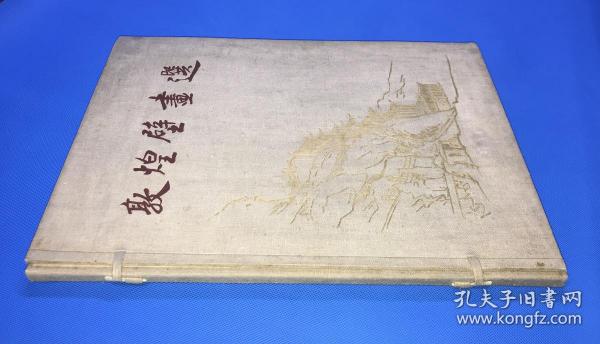 敦煌壁畫選
孔夫子旧書网
www.kongfz.com